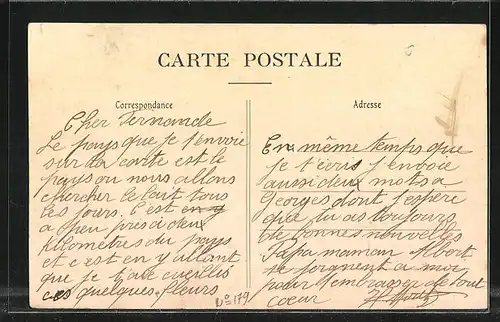 CARTE POSTALE
Correspondance
Adresse
Cher Fernande
Le pays que je t'envoie
sur la carte est le
pays ou nous allons
chercher le lait tous
les jours. C'est en y
a peu près a deux
kilometres du pays
et c'est en y allant
que je t'ale cueillis
ces quelques fleurs
No 179
En même temps que
je t'écris j'envoie
aussi deux mots a
Georges dont j'espère
que tu as toujours
de bonnes nouvelles
Papa maman Albert
se joignent a moi
pour t'embrasser de tout
coeur